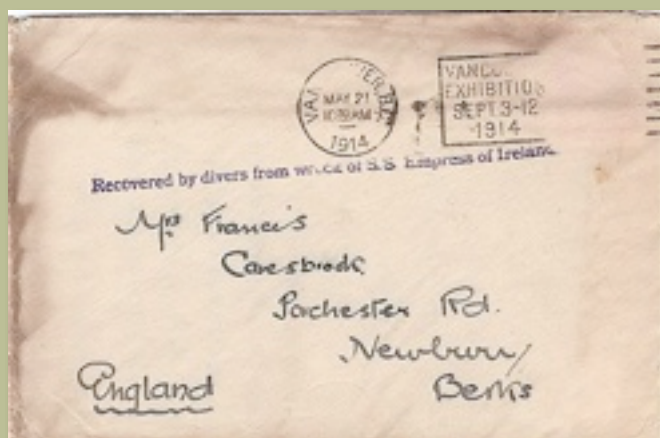 VANCOUVER, B.C.
MAY 21
10:30 AM
1914
VANCOUVER
EXHIBITION
SEPT. 3-12
1914
Recovered by divers from wreck of S.S. Empress of Ireland.
Mrs Francis
Caresbrook
Porchester Rd.
Newbury
Berks
England